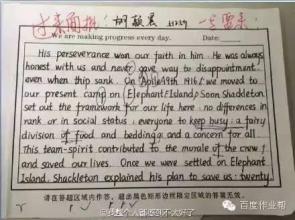 We are making progress every day. Date:
His perseverance won our faith in him. He was always
honest with us and never gave way to disappointment
even when ship sank. On 19th we moved to
our present camp on (Elephant Island) Soon Shackleton
set out the framework for our life here: no differences in
rank or in social status; everyone to keep busy; a fairy
division of food and bedding; and a concern for all.
This team-spirit contributed to the morale of the crew
and saved our lives. Once we were settled on Elephant
Island, Shackleton explained his plan to save us: twenty
请在各题区域内作答，超出黑色矩形边框限定区域的答案无效。
百度作业帮